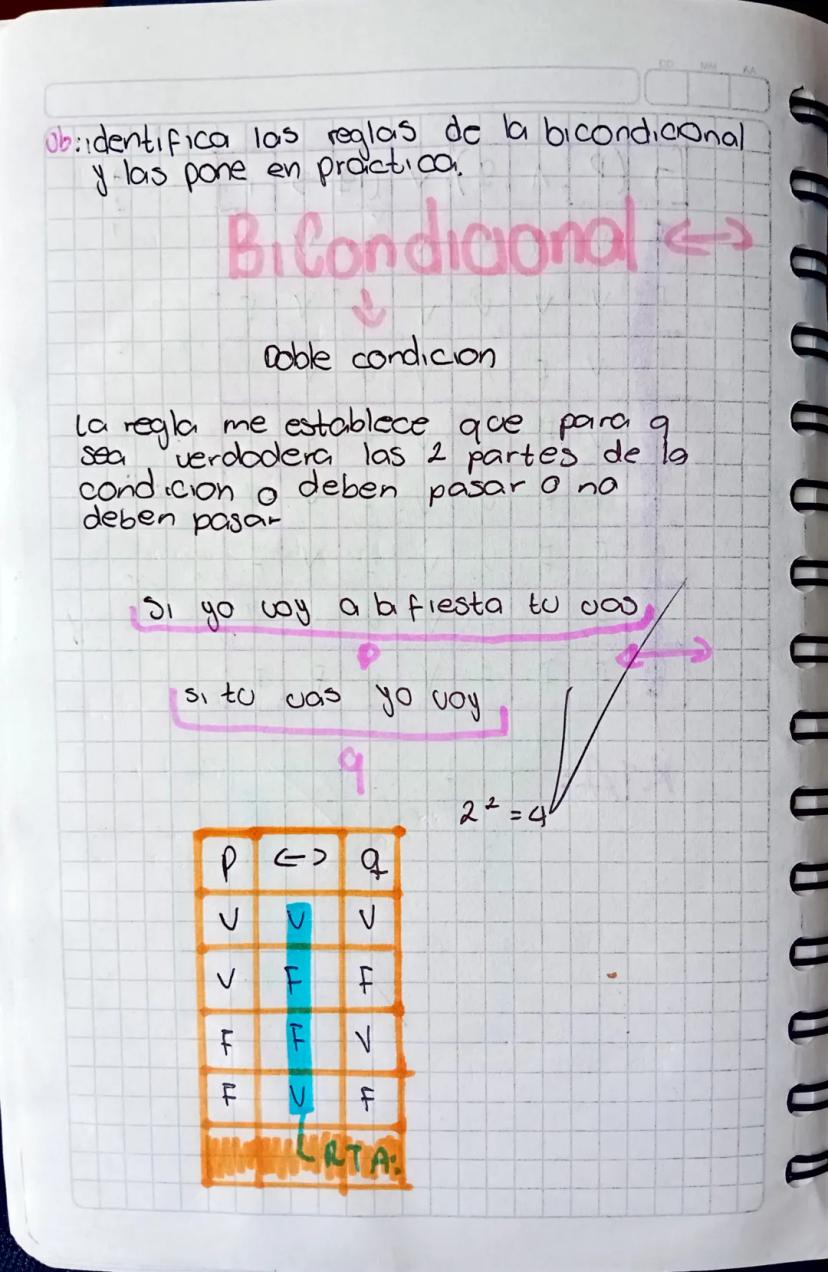 Ob: identifica las reglas de la bicondicional
y las pone en practica.
BiCondicional <->
Doble condicion
La regla me establece que para q
sea verdadera las 2 partes de la
condicion o deben pasar o no
deben pasar
si yo voy a la fiesta tu vas
p <->
si tu vas yo voy
q
2² = 4
p <-> q
V V V
V F F
F F V
F V F
RTA: